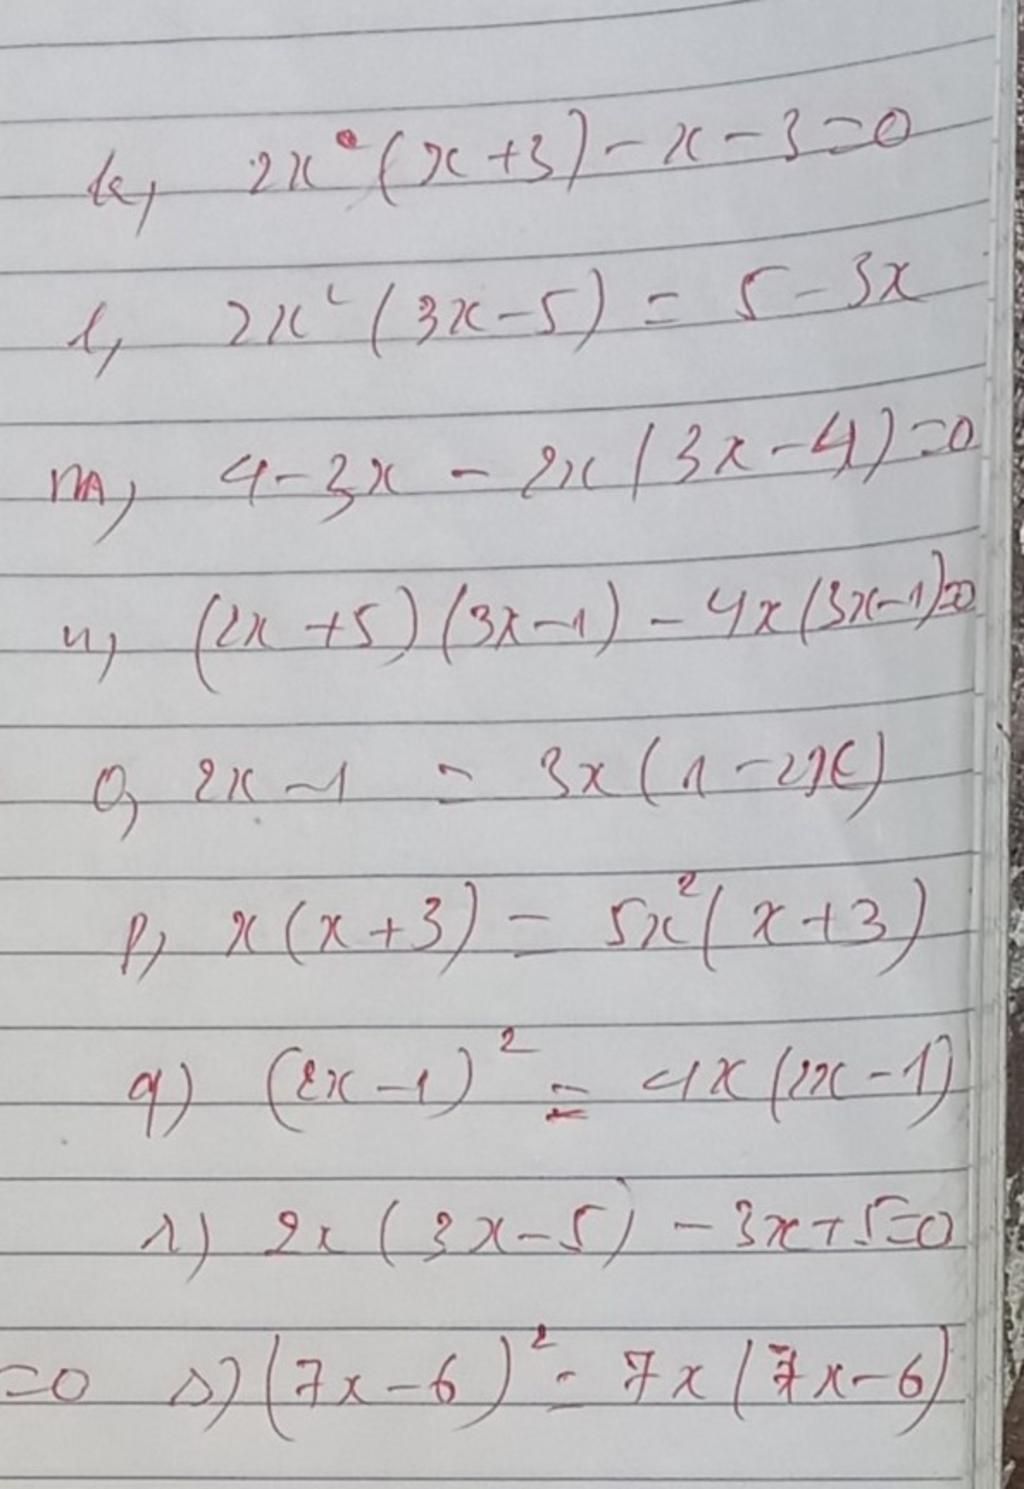 k, 2x (x+3) - x - 3 = 0
l, 2x² (3x-5) = 5 - 3x
m, 4 - 3x - 2x (3x-4) = 0
n, (2x+5)(3x-1) - 4x(3x-1)=0
o, 2x - 1 = 3x (1 - 2x)
p, x(x+3) = 5x²(x+3)
q) (2x-1)² = 4x(2x-1)
r) 2x (3x-5) - 3x+5=0
=0 s) (7x-6)² = 7x (7x-6)